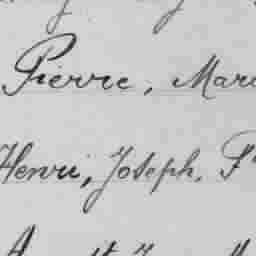 Pierre, Mar
Henri, Joseph, F